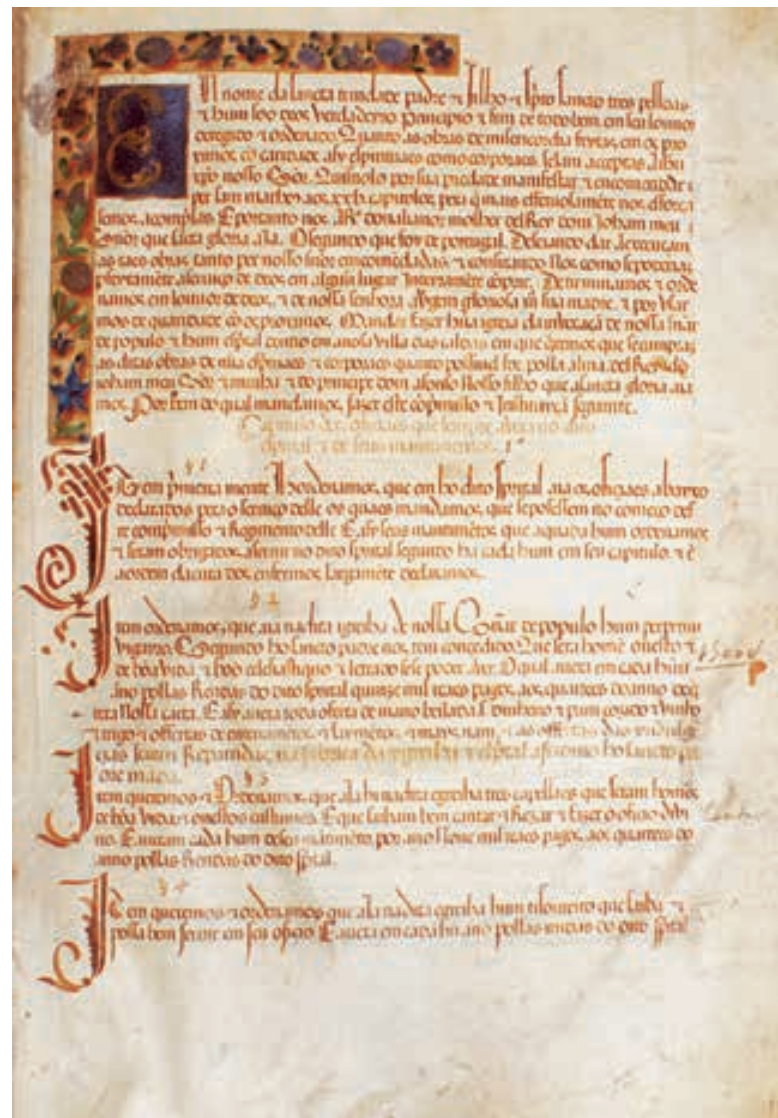 E
m nome da sancta trindade padre & filho & spto sancto tres pessoas
& hum soo deos verdadeyro principio & fim de todo bem em seu louvor
deregido & ordenado. Quanto as obras de misericordia feytas em os pro
ximos co caridade assy espirituaes como corporaes sejam acceptas
nosso Sñor. Quisnolo por sua piedade manifestar & encomendar
per sam matheo aos xxb capitolos pera que mais
semos acomplas E portanto nos dona lianor molher del Rey dom Joham meu
Senor que sancta gloria aja. O segundo que foy de portugal. Desejando dar a execuçam
as taes obras tanto per nosso snor encomendadas & confirando nos como se poderiam
perfeytamete a serviço de deos em alguu lugar Inteiramete coprir. Determinamos & orde
namos em louvor de deos & de nossa senhora a virgem gloriosa sua madre & por usar
mos de quaridade co os proximos. Mandar fazer hua igreia da invocaçã de nossa snar
de populo & hum espital comum em a nossa Villa das caldas em que queremos que se cumpram
as ditas obras de mia espirituaes & corporaes quanto possivel for polla alma del Rey dom
Joham meu Sor & minha & do principe dom afonso Nosso filho que a sancta gloria aja
mos. Por bem do qual mandamos fazer este copmisso & Instituiçã seguinte.
Capitulo dos oficiaes que sempre avera no dito
spital & de seus mantimentos. 1º
§ 1
Item primeira mente Nos ordenamos, que em ho dito spital aja os oficiaes abaixo
declarados pera o serviço delle os quaes mandamos, que se posessem no começo des
te compromisso & Regimento delle E assy seus mantimetos que a quada hum ordenamos
& seram obrigados a servir no dito spital segundo ha cada hum em seu capitulo & e
a ordem da cura dos enfermos largamete declaramos.
§ 2
Item ordenamos, que aja na dita igreiha de nossa Senar de populo hum perpetuu
vigairo. Segundo ho sancto padre nos tem concedido. Que sera home onesto &
de boa vida & boo eclesiastiquo & letrado se se poder aver. O qual avera em cada huu
ano pollas Rendas do dito spital quinze mil reaes pagos aos quarteis do anno
nossa carta. E assy avera toda oferta de mano beijada s. dinheiro & pam cozido & vinho
& trigo & offertas de & & nam as offertas das indulge
cias seram Repartidas na fabrica da igreiha & espital assi como ho sancto pa
dre manda.
§ 3
Item queremos & Ordenamos que aja hi na dita egreiha tres capellaes que seram homes
de boa vida & onestos custumes. E que saibam bem cantar & Rezar & fazer o oficio divi
no. E averam cada hum de seu mantimeto por ano nove mil reaes pagos aos quarteis do
anno pollas Rendas do dito spital.
§ 4
Item queremos & ordenamos que aja na dita egreiha hum tisoureiro que saiba &
possa bem servir em seu oficio E avera em cada hu ano pollas rendas do dito spital